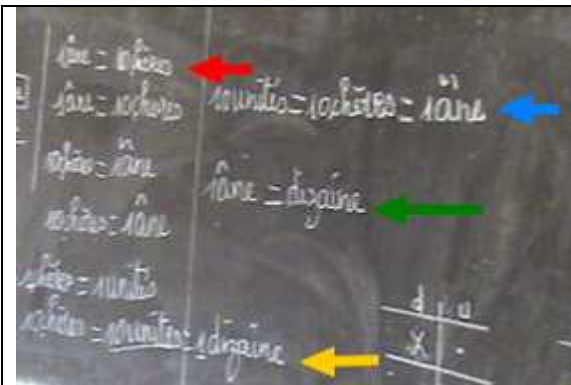 1âne = 10chèvres
1âne = 10chèvres
10chèvres = 1âne
10chèvres = 1âne
= 1unités
10chèvres = 10unités = 1dizaine
10unités = 10chèvres = 1âne
1âne = dizaine
d u
X -